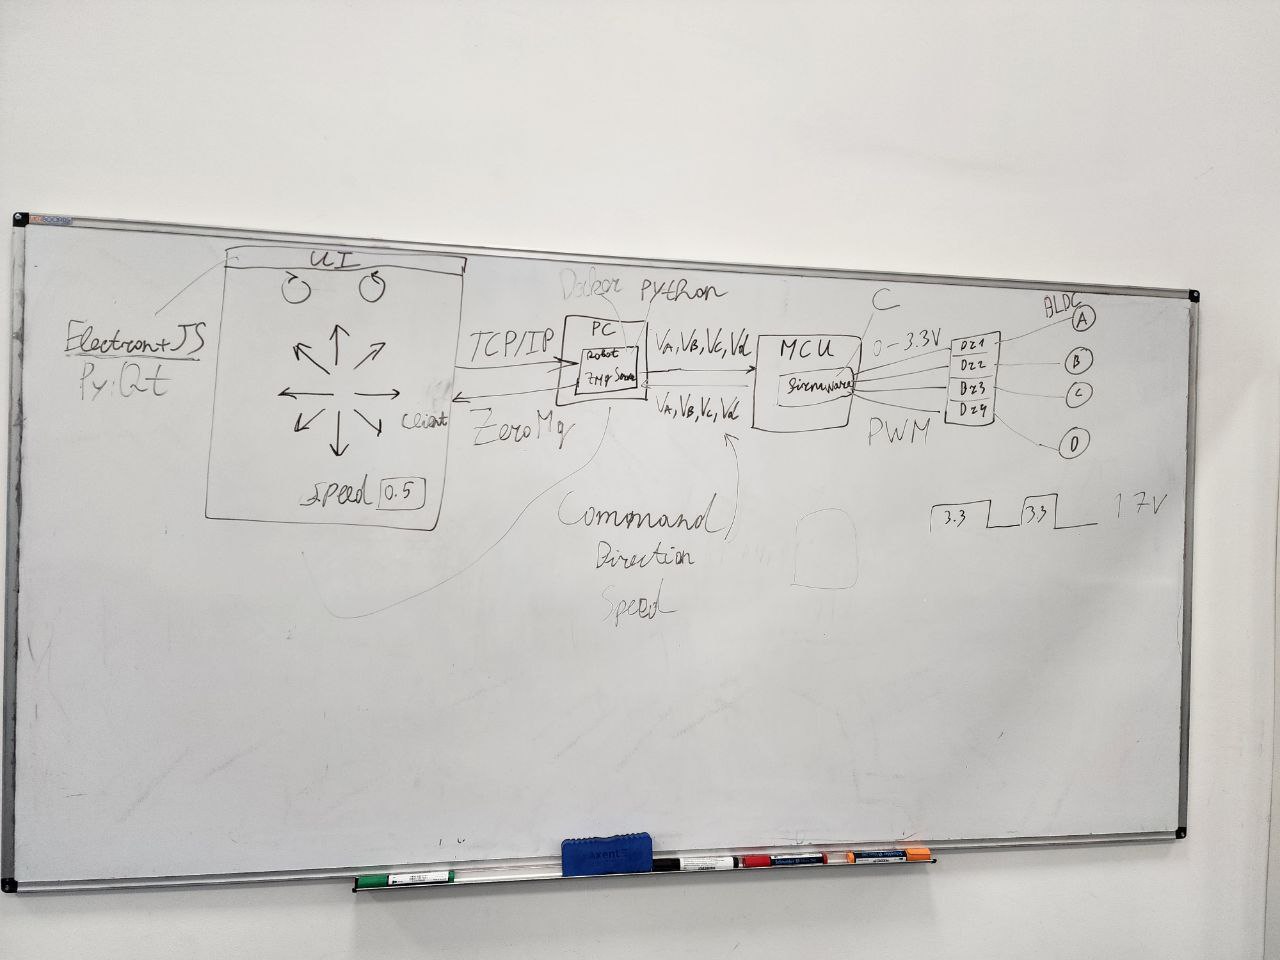 UI
Electron+JS
PyQt
Client
Speed 0.5
TCP/IP
ZeroMq
Docker
Python
PC
Robot
ZMq Server
VA, VB, VC, Vd
VA, VB, VC, Vd
Command
Direction
Speed
C
MCU
firmware
0-3.3V
PWM
Dr1
Dr2
Dr3
Dr4
BLDC
A
B
C
D
3.3
3.3
1.7V
Axent